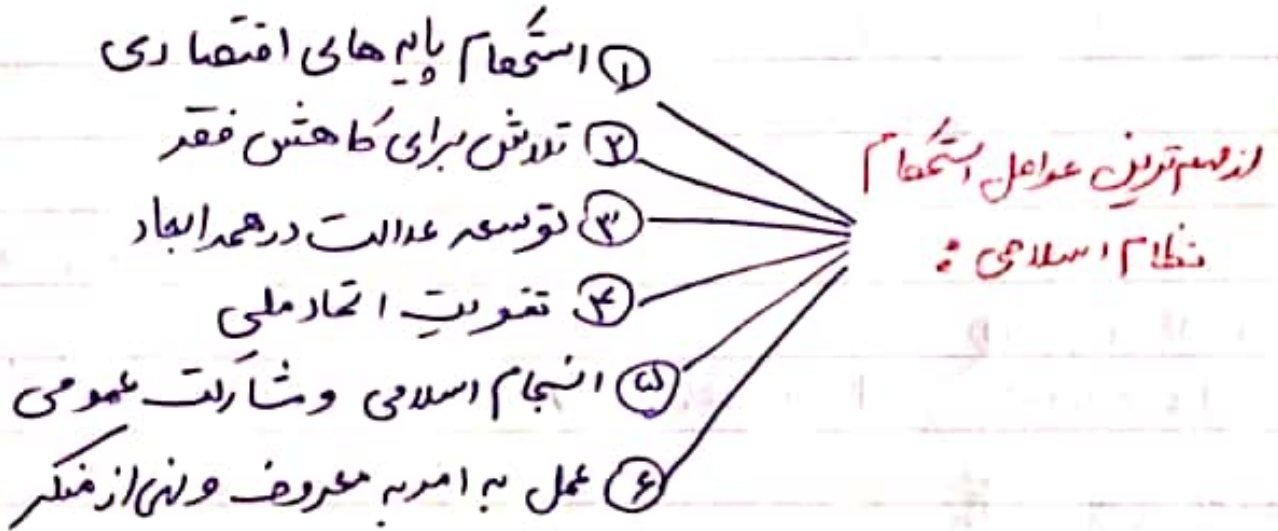 از مهم ترین عوامل استحکام
نظام اسلامی :
① استحکام پایه های اقتصادی
② تلاش برای کاهش فقر
③ توسعه عدالت در همه ابعاد
④ تقویت اتحاد ملی
⑤ انسجام اسلامی و مشارکت عمومی
⑥ عمل به امر به معروف و نهی از منکر